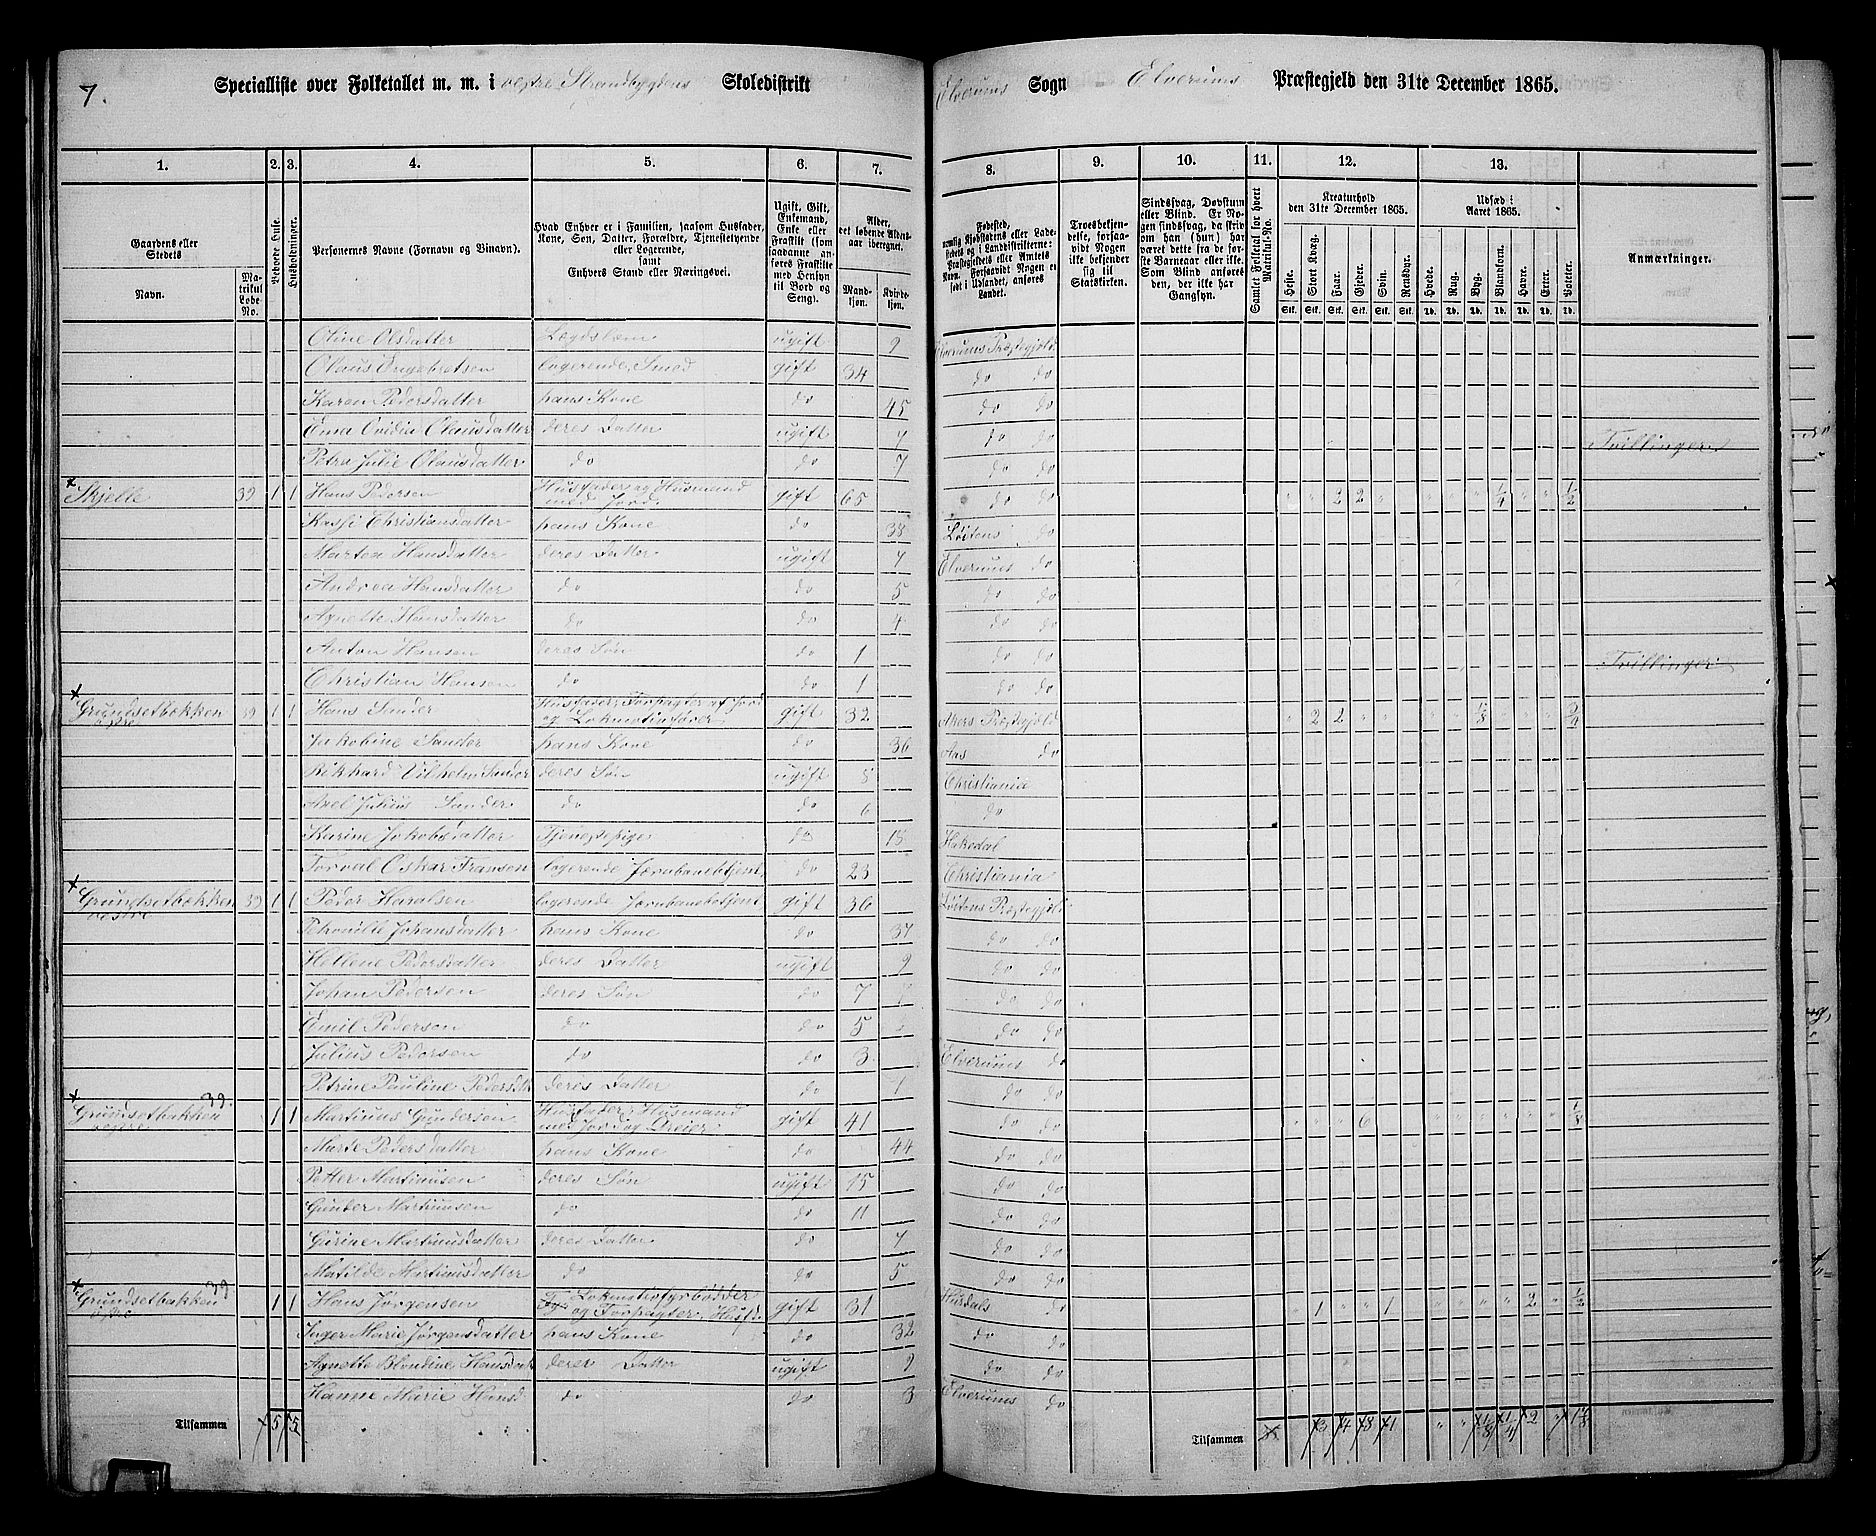 7.
Specialliste over Folketallet m. m. i vestre Strandbygdens Skoledistrikt
Elverums Sogn Elverums Præstegjeld den 31te December 1865.
1. 2. 3. 4. 5. 6. 7. 8. 9. 10. 11. 12. 13.
Gaardens eller Stedets Navn. Matrikul Løbe-No.
Beboede Huse.
Husholdninger.
Personernes Navne (Fornavn og Binavn).
Hvad Enhver er i Familien, saasom Husfader, Kone, Søn, Datter, Forældre, Tjenestetyende eller Logerende, samt Enhvers Stand eller Næringsvei.
Ugift, Gift, Enkemand, Enke eller Fraskilt (som saadanne anføres Fraskilte med Hensyn til Bord og Seng).
Alder, det løbende Alders-aar iberegnet. Mand-kjøn. Kvinde-kjøn.
Troesbekjendelse, forsaavidt Nogen ikke bekjender sig til Statskirken.
Sindssvag, Døvstum eller Blind. Er Nogen sindssvag, da skrives om han (hun) har været dette fra de første Barneaar eller ikke. Som Blind anføres den, der ikke har Gangsyn.
Samlet Folketal for hvert Matrikul-No.
Kreaturhold den 31te December 1865.
Heste. Stort Kvæg. Faar. Gjeder. Svin. Rensdyr.
Udsæd i Aaret 1865.
Hvede. Rug. Byg. Blandkorn. Havre. Erter. Poteter.
Anmærkninger.
Oline Olsdatter Lægdslem ugift 9 Elverums Præstegjeld
Olaus Engebretsen Logerende, Smed gift 34 do do
Karen Pedersdatter hans Kone do 45 do do
Ema Ovidia Olausdatter deres Datter ugift 7 do do Tvillinger
Petra Julie Olausdatter do do 7 do do
Skjelle 39 1 1 Hans Pedersen Husfader og Husmand med Jord. gift 65 do do " " 2 2 " " " 1/4 " " 1/2
Kassi Christiansdatter hans Kone do 38 Løitens do
Martea Hansdatter deres Datter ugift 7 Elverums do
Andrea Hansdatter do do 5 do do
Agnette Hansdatter do do 4 do do
Anton Hansen deres Søn do 1 do do Tvillinger
Christian Hansen do do 1 do do
Grundsetbakken østre 39 1 1 Hans Sander Husfader, Forpagter af Jord og Lokmotivfører gift 32 Akers Præstegjeld " 2 2 " " " " 1/8 " " " 3/4
Jakobine Sander hans Kone do 36 Aas do
Rikhard Vilhelm Sander deres Søn ugift 8 Christiania
Axel Julius Sander do do 6 do
Karine Jakobsdatter Tjenestepige do 18 Hakedal
Torval Oskar Fransen Logerende Jernbanebtjent do 23 Christiania
Grundsetbakken vestre 39 1 1 Peder Haralsen Logerende Jernbanebetjent gift 36 Løitens Præstegjeld
Petronille Johansdatter hans Kone do 37 do do
Hellene Pedersdatter deres Datter ugift 9 do do
Johan Pedersen deres Søn do 7 do do
Emil Pedersen do do 5 do do
Julius Pedersen do do 3 Elverums do
Petrine Pauline Pedersdt deres Datter do 1 do do
Grundsetbakken vestre 39. 1 1 Martinus Gundersen Husfader, Husmand med Jord og Dreier gift 41 do do " " " 6 " " " " " " 1/8
Marte Pedersdatter hans Kone do 44 do do
Petter Martinusen deres Søn ugift 15 do do
Gunder Martinusen do do 11 do do
Gurine Martinusdatter deres Datter do 7 do do
Matilde Martinusdatter do do 5 do do
Grundsetbakken østre 39 1 1 Hans Jørgensen Lokmotivfyrbødder og Forpagter, Husfd. gift 31 Hurdals do " 1 " " 1 " " " 2 " 1/2
Inger Marie Jørgensdatter hans Kone do 32 do do
Agnette Blondine Hansdatt deres Datter ugift 9 do do
Hanne Marie Hansd do do 3 Elverums do
Tilsammen 5 5
Tilsammen 3 4 8 1 " " 1/8 1/4 2 "